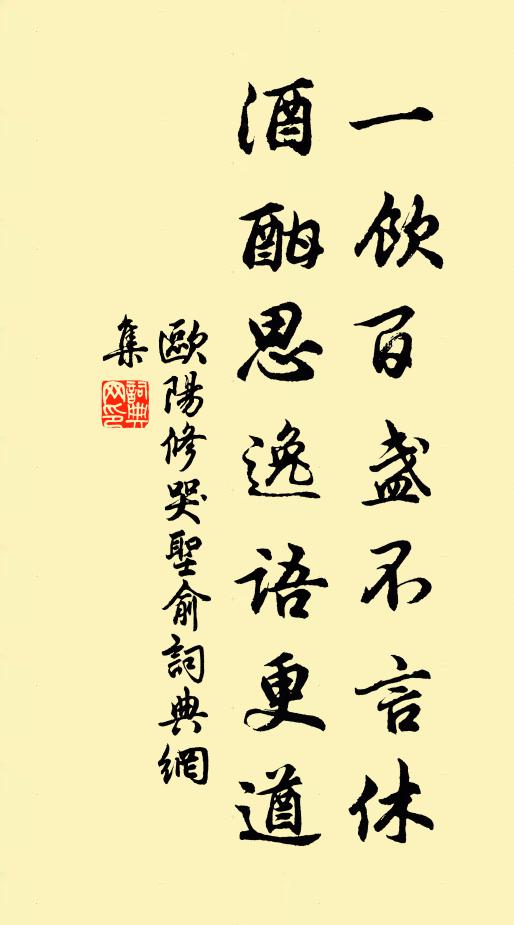 一飲百盞不言休
酒酣思逸語更遒
歐陽修哭聖俞詞典網
集
詞典網印